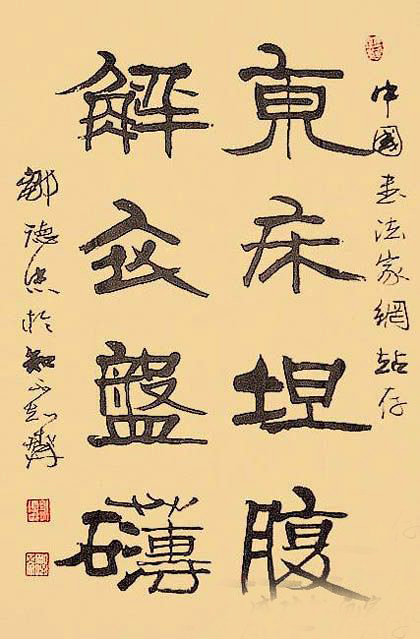 中國書法家網站存
東床坦腹
解衣盤礴
鄒德忠於知不知齋